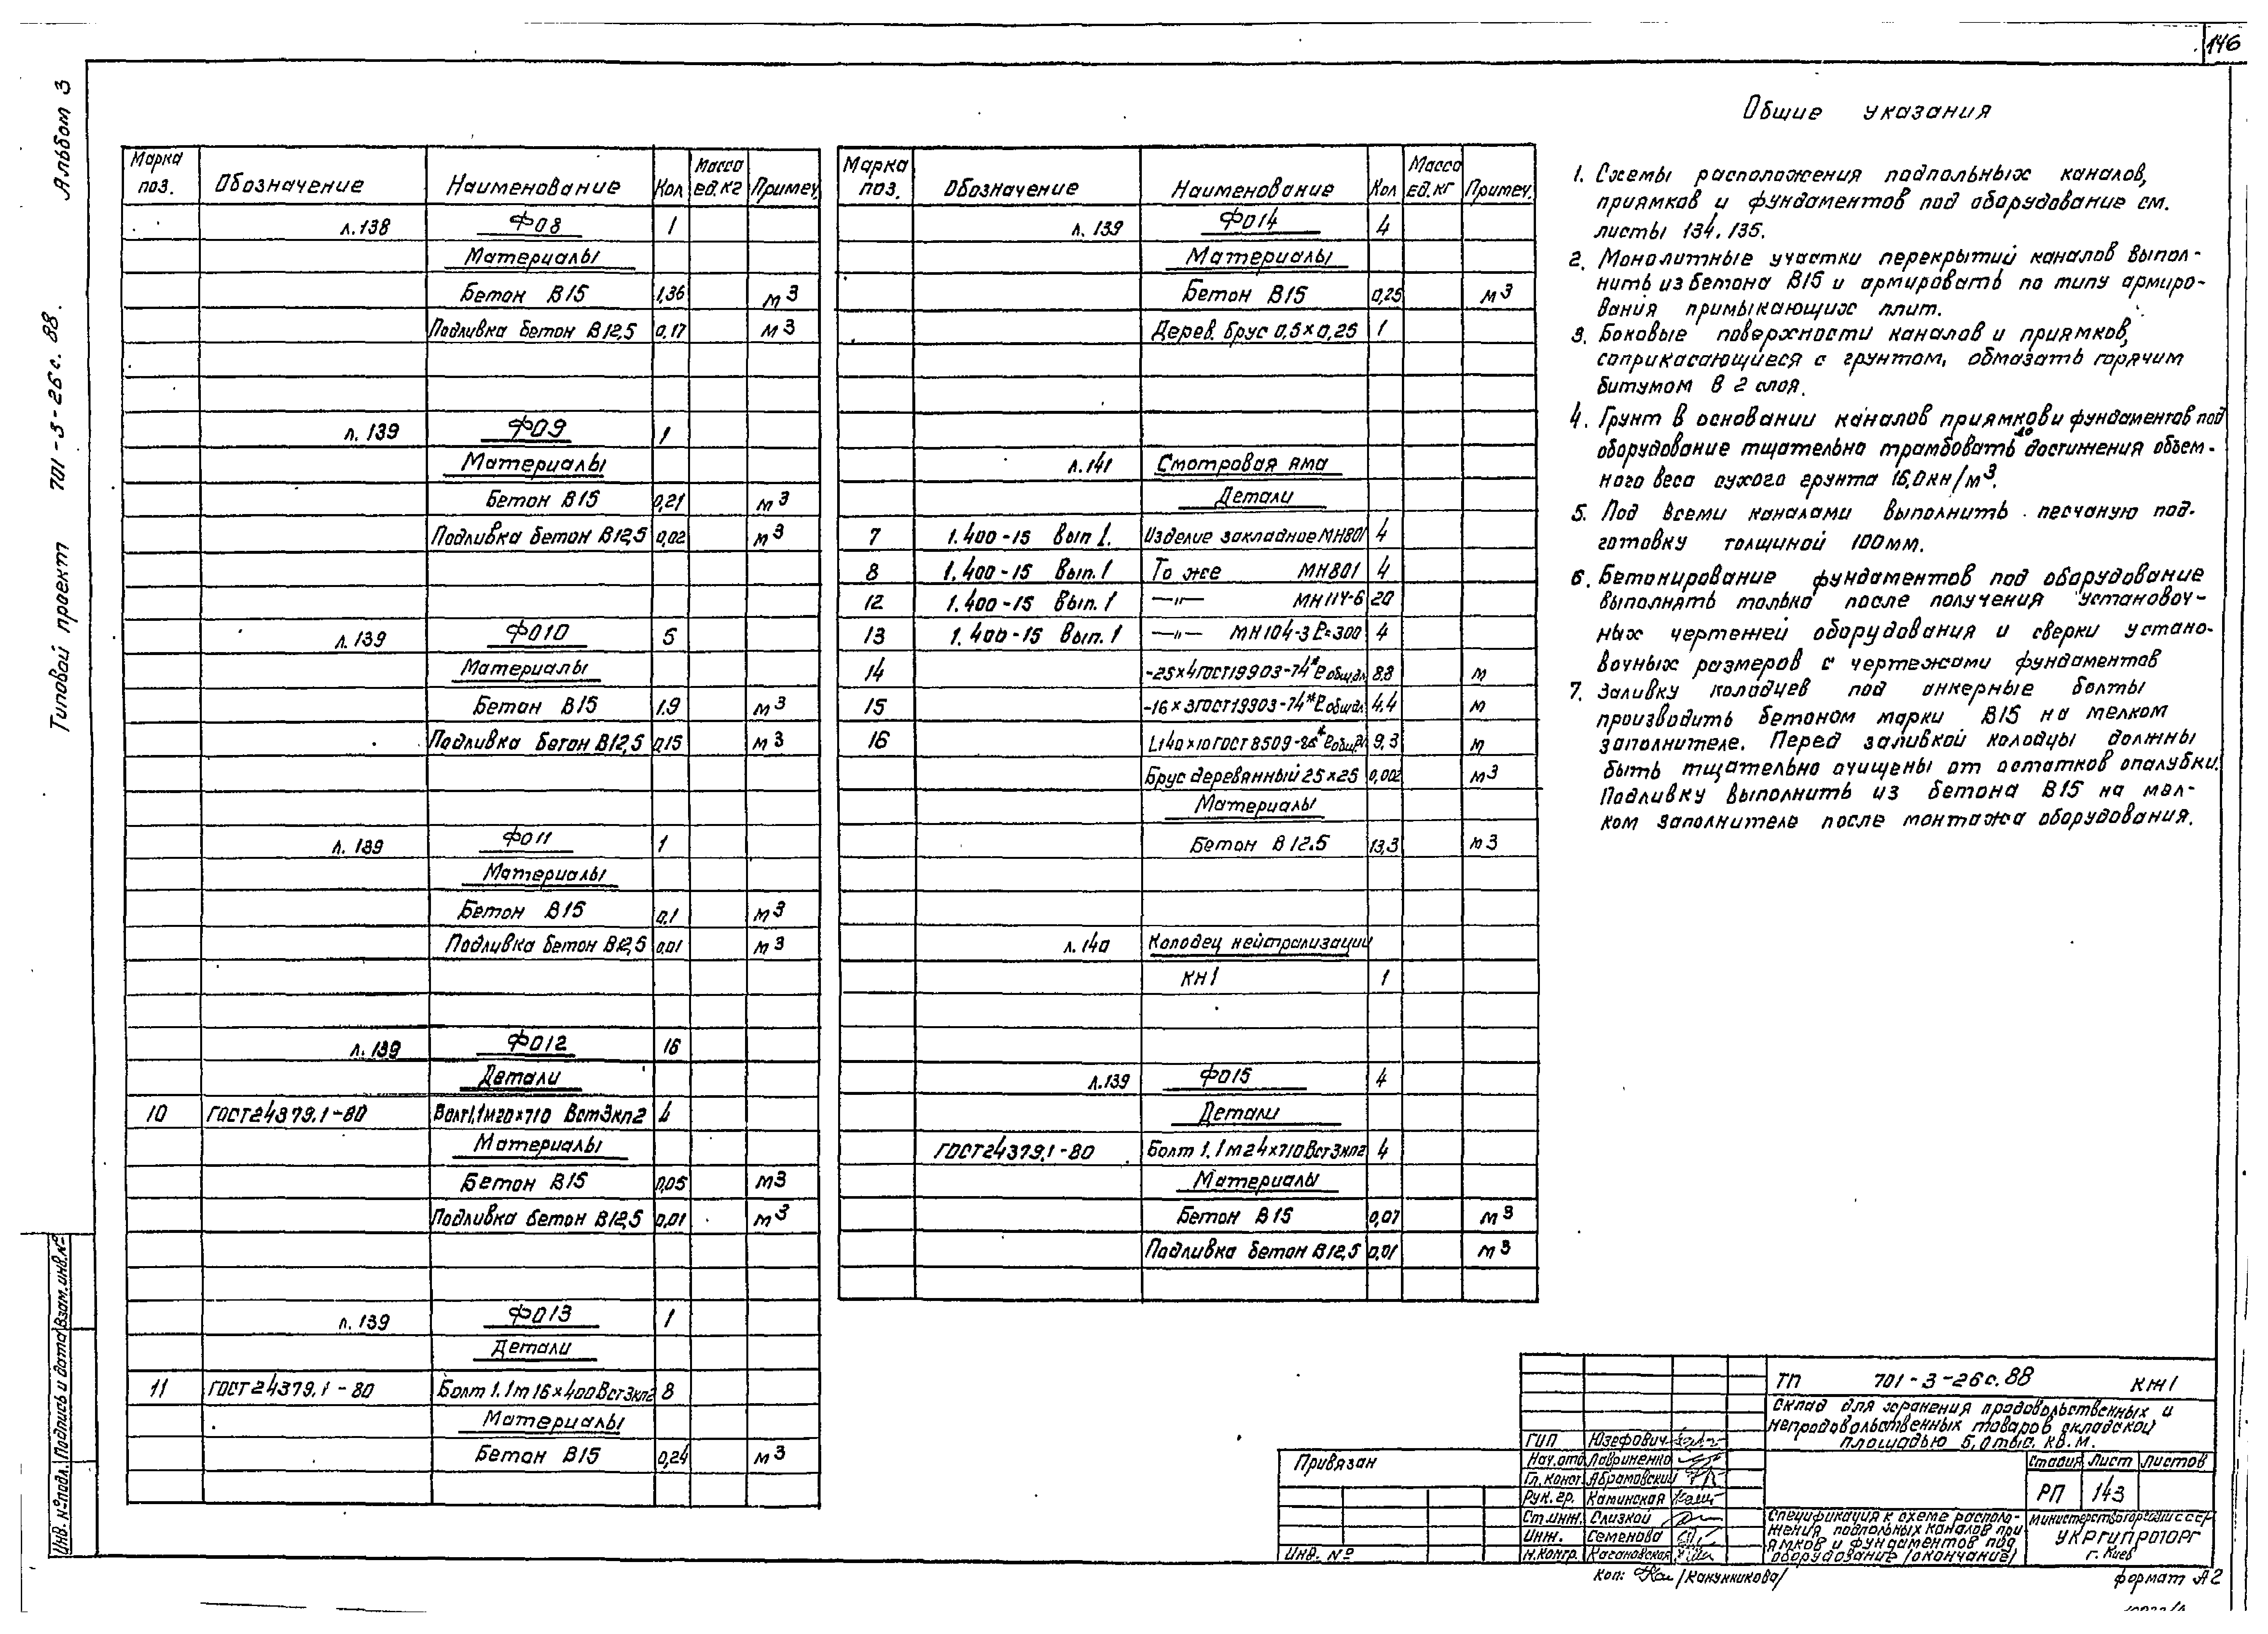 146
Альбом 3
Типовой проект 701-3-26с.88.
Марка поз. Обозначение Наименование Кол Масса ед.кг Примеч.
л.138 ФО8 1
Материалы
Бетон В15 1,36 м3
Подливка бетон В12,5 0,17 м3
л.139 ФО9 1
Материалы
Бетон В15 0,21 м3
Подливка бетон В12,5 0,02 м3
л.139 ФО10 5
Материалы
Бетон В15 1.9 м3
Подливка бетон В12,5 0,15 м3
л.139 ФО11 1
Материалы
Бетон В15 0.1 м3
Подливка бетон В12,5 0,01 м3
л.139 ФО12 16
Детали
10 ГОСТ24379.1-80 Болт1.1м20×710 Вст3кп2 4
Материалы
Бетон В15 0,05 м3
Подливка бетон В12,5 0,01 м3
л.139 ФО13 1
Детали
11 ГОСТ24379.1-80 Болт 1.1м16×400Вст3кп2 8
Материалы
Бетон В15 0,24 м3
Марка поз. Обозначение Наименование Кол Масса ед.кг Примеч.
л.139 ФО14 4
Материалы
Бетон В15 0,25 м3
Дерев. брус 0,5×0,25 1
л.141 Смотровая яма
Детали
7 1.400-15 Вып 1. Изделие закладное МН801 4
8 1.400-15 Вып.1 То же МН801 4
12 1.400-15 Вып.1 —"— МН114-6 20
13 1.400-15 Вып.1 —"— МН104-3 ℓ=300 4
14 -25×4ГОСТ19903-74* ℓобщ.дл 8.8 м
15 -16×3ГОСТ19903-74* ℓобщдл 4.4 м
16 L140×10ГОСТ8509-86* ℓобщ.дл 9,3 м
Брус деревянный 25×25 0,002 м3
Материалы
Бетон В12.5 13,3 м3
л.140 Колодец нейтрализации
КН1 1
л.139 ФО15 4
Детали
ГОСТ24379.1-80 Болт 1.1м24×710Вст3кп2 4
Материалы
Бетон В15 0,07 м3
Подливка бетон В12,5 0,01 м3
Общие указания
1. Схемы расположения подпольных каналов,
приямков и фундаментов под оборудование см.
листы 134, 135.
2. Монолитные участки перекрытий каналов выпол-
нить из бетона В15 и армировать по типу армиро-
вания примыкающих плит.
3. Боковые поверхности каналов и приямков,
соприкасающиеся с грунтом, обмазать горячим
битумом в 2 слоя.
4. Грунт в основании каналов приямков и фундаментов под
оборудование тщательно трамбовать до достижения объем-
ного веса сухого грунта 16,0кн/м3.
5. Под всеми каналами выполнить песчаную под-
готовку толщиной 100мм.
6. Бетонирование фундаментов под оборудование
выполнять только после получения установоч-
ных чертежей оборудования и сверки устано-
вочных размеров с чертежами фундаментов
7. Заливку колодцев под анкерные болты
производить бетоном марки В15 на мелком
заполнителе. Перед заливкой колодцы должны
быть тщательно очищены от остатков опалубки.
Подливку выполнить из бетона В15 на мел-
ком заполнителе после монтажа оборудования.
Инв. №подл. Подпись и дата Взам.инв.№
Привязан
Инв. №
ГИП Юзефович
Нач.отд Лавриненко
Гл.конст Абрамовский
Рук.гр. Каминская
Ст.инж. Слизкой
Инж. Семенова
Н.контр. Касановская
ТП 701-3-26с.88 КЖ1
Склад для хранения продовольственных и
непродовольственных товаров складской
площадью 5,0тыс. кв.м.
Стадия Лист Листов
РП 143
Спецификация к схеме располо-
жения подпольных каналов при-
ямков и фундаментов под
оборудование /окончание/
УКРГИПРОТОРГ
г. Киев
Коп: /Канунникова/
формат А2